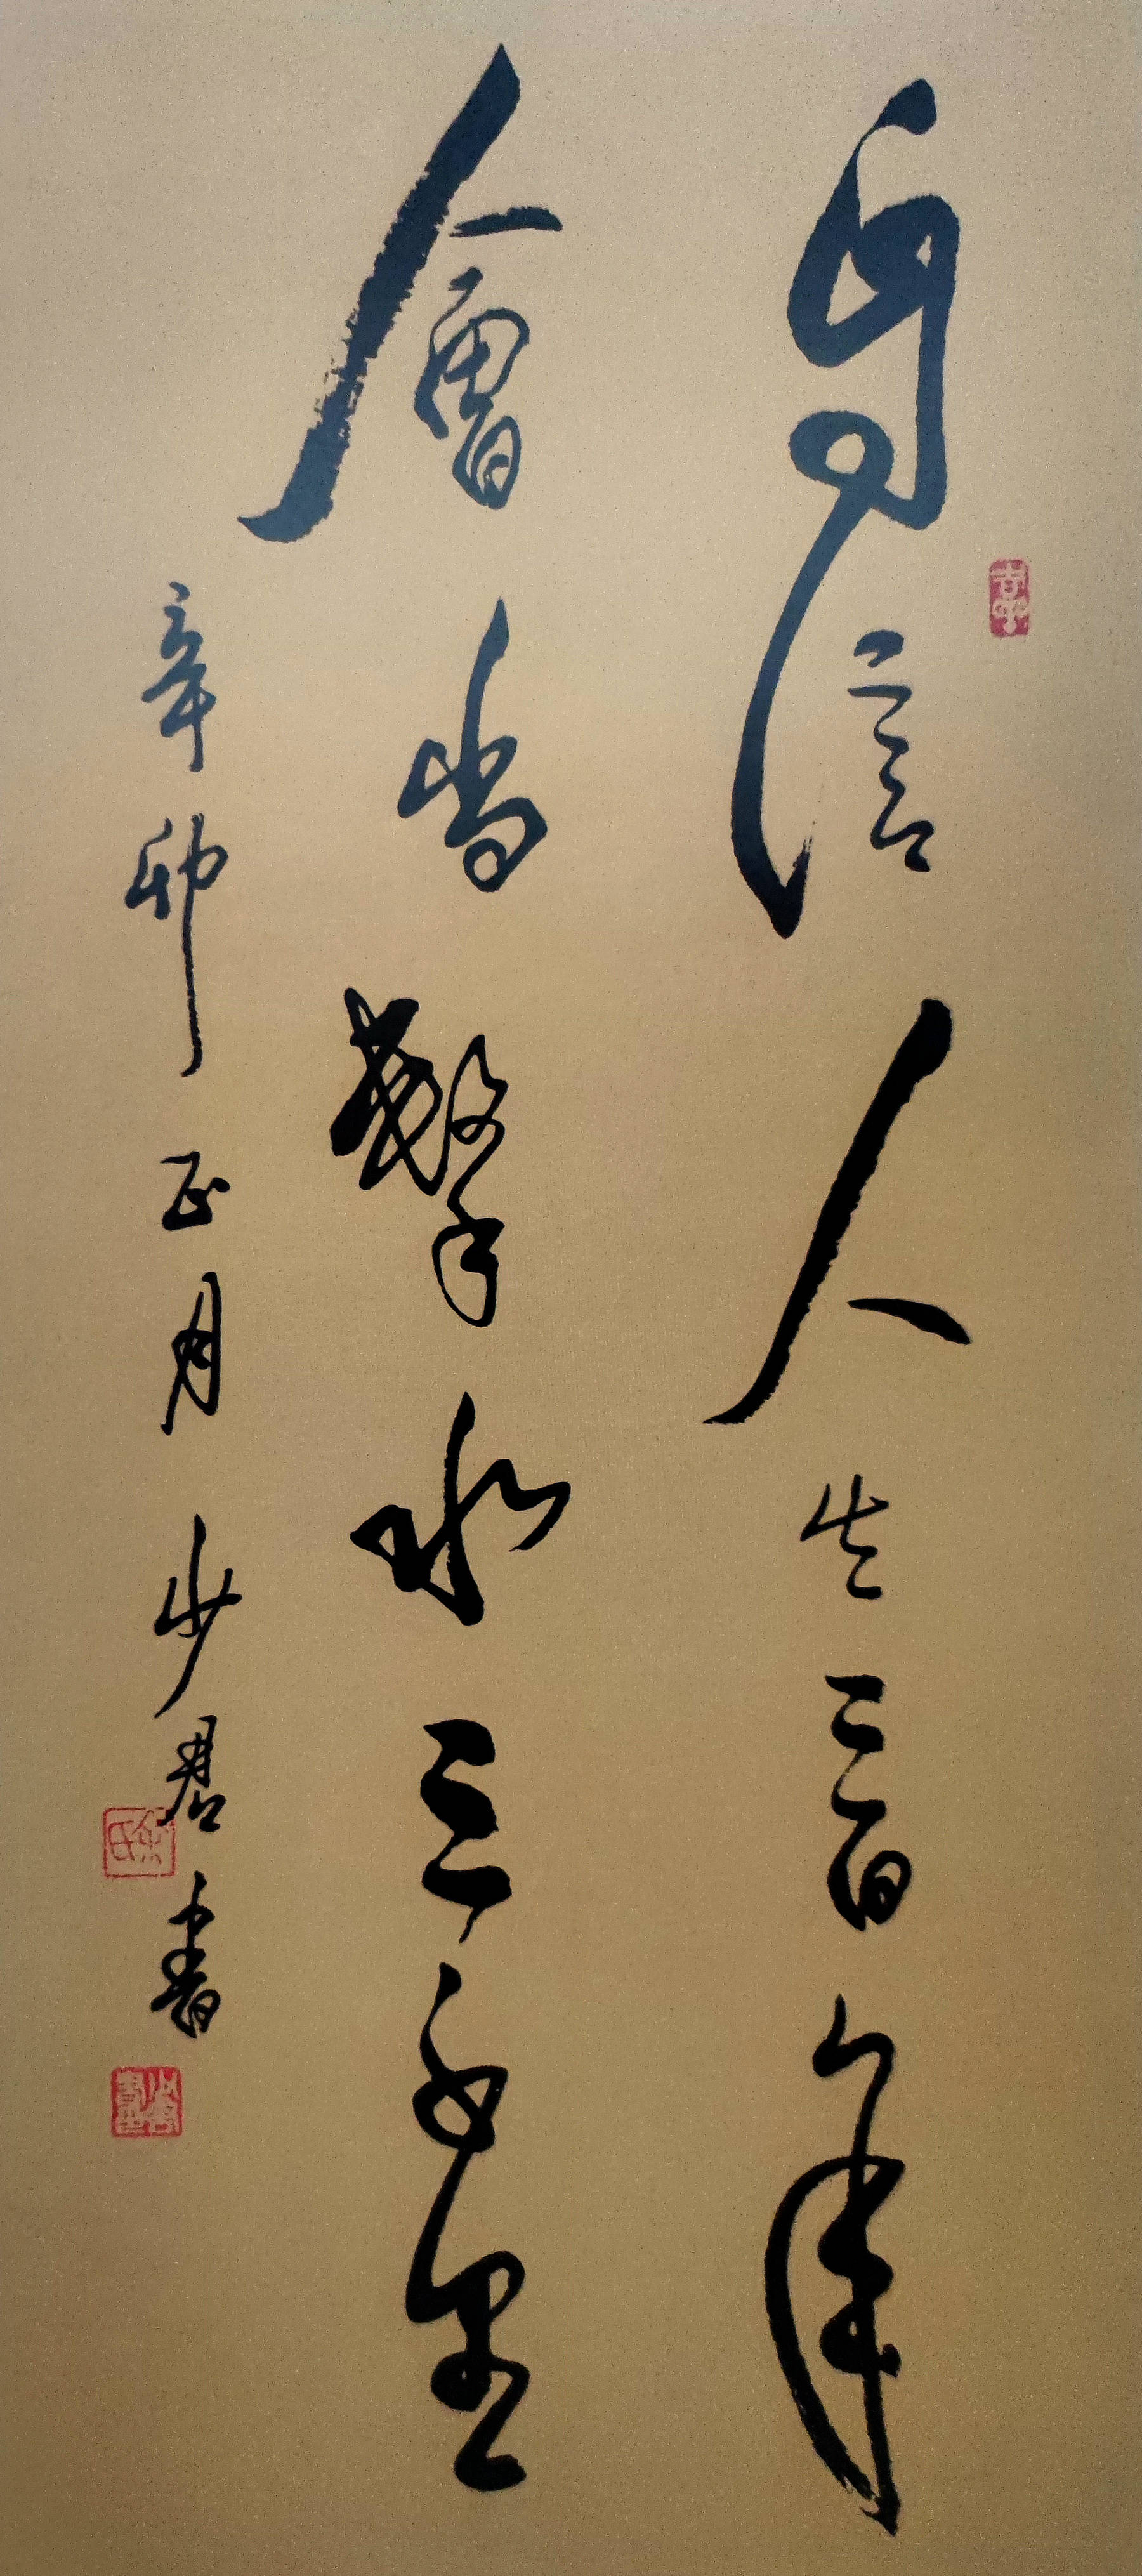 自信人生二百年
會當擊水三千里
辛卯正月少君書